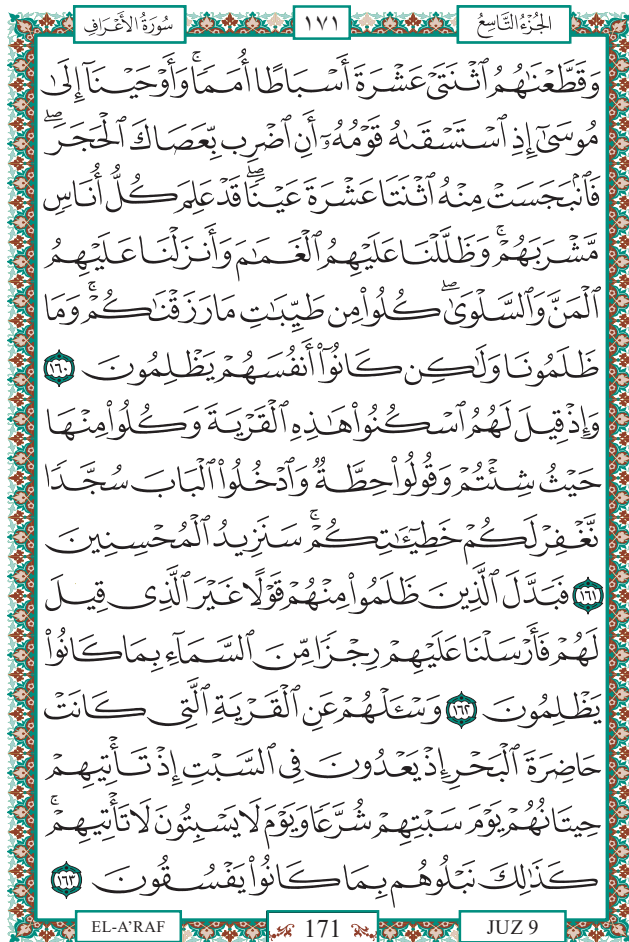 سُورَةُ الأَعْرَافِ
١٧١
الجُزْءُ التَّاسِعُ
وَقَطَّعْنَٰهُمُ ٱثْنَتَىْ عَشْرَةَ أَسْبَاطًا أُمَمًاۚ وَأَوْحَيْنَآ إِلَىٰ
مُوسَىٰٓ إِذِ ٱسْتَسْقَىٰهُ قَوْمُهُۥٓ أَنِ ٱضْرِب بِّعَصَاكَ ٱلْحَجَرَۖ
فَٱنۢبَجَسَتْ مِنْهُ ٱثْنَتَا عَشْرَةَ عَيْنًاۖ قَدْ عَلِمَ كُلُّ أُنَاسٍ
مَّشْرَبَهُمْۚ وَظَلَّلْنَا عَلَيْهِمُ ٱلْغَمَٰمَ وَأَنزَلْنَا عَلَيْهِمُ
ٱلْمَنَّ وَٱلسَّلْوَىٰۖ كُلُوا۟ مِن طَيِّبَٰتِ مَا رَزَقْنَٰكُمْۚ وَمَا
ظَلَمُونَا وَلَٰكِن كَانُوٓا۟ أَنفُسَهُمْ يَظْلِمُونَ ١٦٠
وَإِذْ قِيلَ لَهُمُ ٱسْكُنُوا۟ هَٰذِهِ ٱلْقَرْيَةَ وَكُلُوا۟ مِنْهَا
حَيْثُ شِئْتُمْ وَقُولُوا۟ حِطَّةٌ وَٱدْخُلُوا۟ ٱلْبَابَ سُجَّدًا
نَّغْفِرْ لَكُمْ خَطِيٓـَٰٔتِكُمْۚ سَنَزِيدُ ٱلْمُحْسِنِينَ
١٦١ فَبَدَّلَ ٱلَّذِينَ ظَلَمُوا۟ مِنْهُمْ قَوْلًا غَيْرَ ٱلَّذِى قِيلَ
لَهُمْ فَأَرْسَلْنَا عَلَيْهِمْ رِجْزًا مِّنَ ٱلسَّمَآءِ بِمَا كَانُوا۟
يَظْلِمُونَ ١٦٢ وَسْـَٔلْهُمْ عَنِ ٱلْقَرْيَةِ ٱلَّتِى كَانَتْ
حَاضِرَةَ ٱلْبَحْرِ إِذْ يَعْدُونَ فِى ٱلسَّبْتِ إِذْ تَأْتِيهِمْ
حِيتَانُهُمْ يَوْمَ سَبْتِهِمْ شُرَّعًا وَيَوْمَ لَا يَسْبِتُونَ لَا تَأْتِيهِمْۚ
كَذَٰلِكَ نَبْلُوهُم بِمَا كَانُوا۟ يَفْسُقُونَ ١٦٣
EL-A’RAF
171
JUZ 9